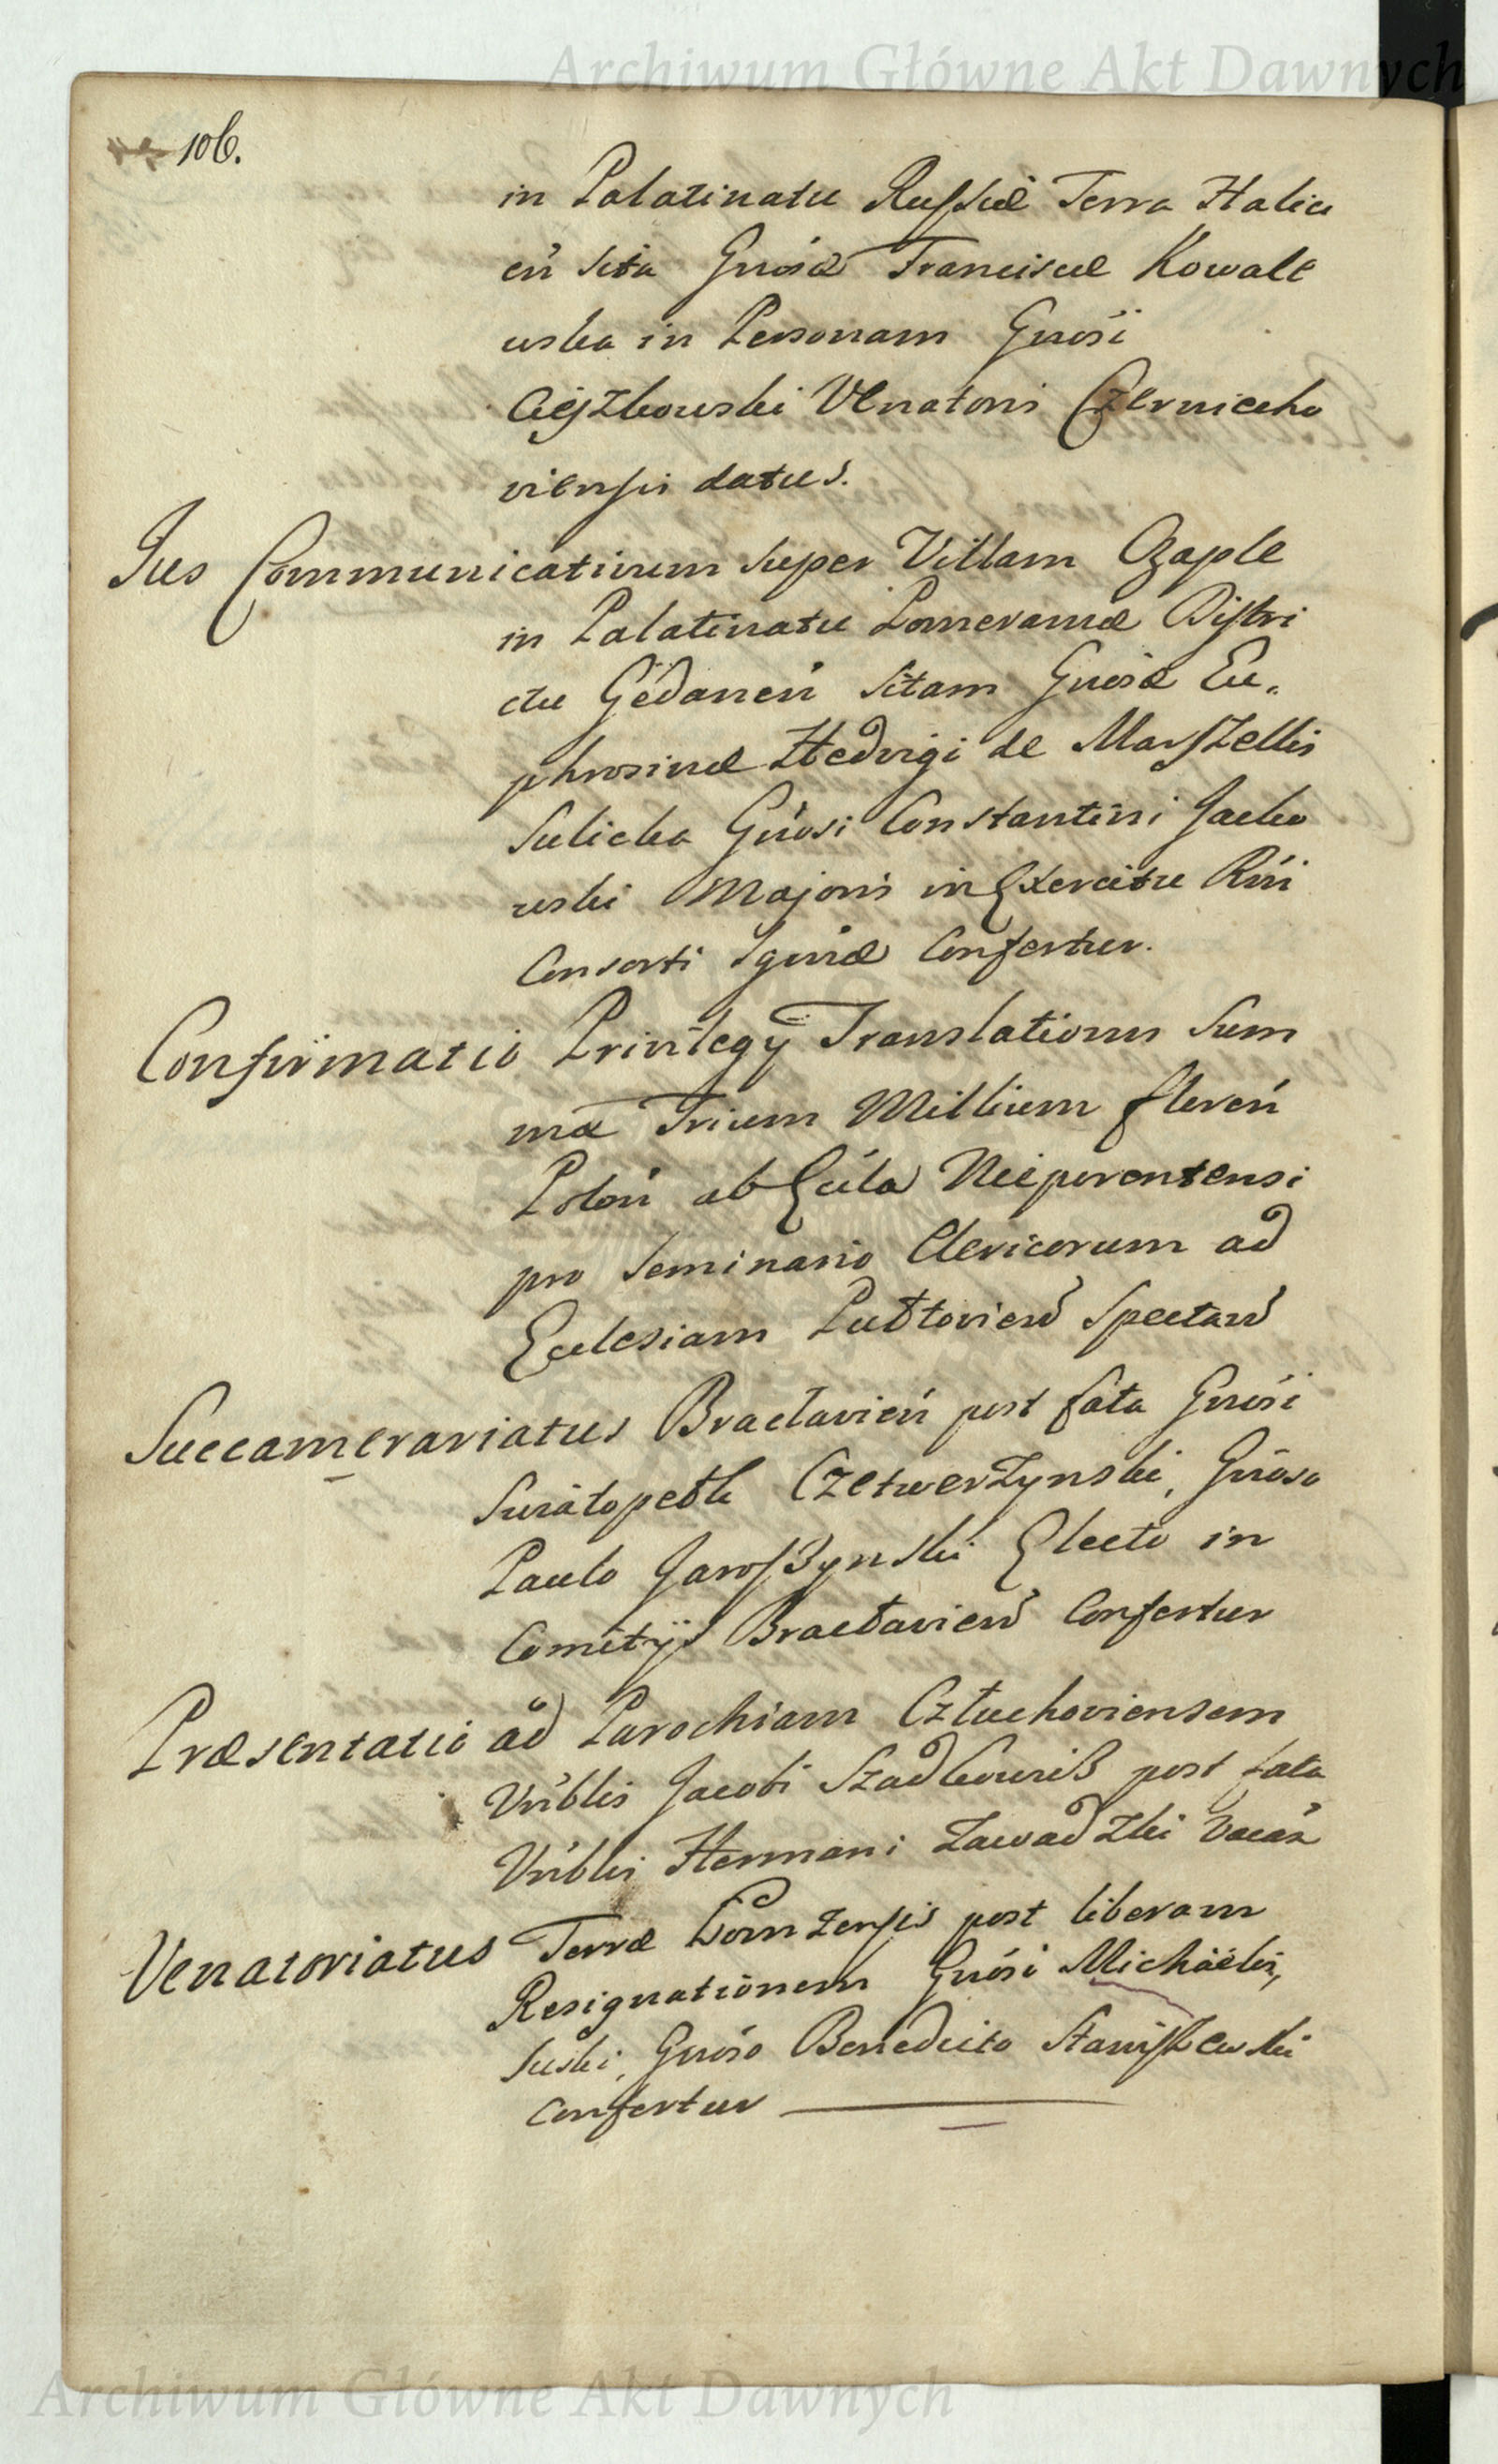 Archiwum Główne Akt Dawnych
106.
in Palatinatu Russiæ Terra Halici
eń sita Gnosæ Franciscæ Kowale
wska in Personam Gnosi
Cięszkowski Venatoris Czerniecho
viensis datus.
Jus Communicativum super Villam Czaple
in Palatinatu Pomeraniæ Distri
ctu Gedaneń sitam Gnosæ Eu„
phrosinæ Hedvigi de Marszellis
Sulicka Gnosi Constantini Jacko
wski Majoris in Exercitu Rńi
Consorti Sgniæ Confertur.
Confirmatio Privilegÿ Translationis Sum
mæ Trium Millium floreń
Poloń ab Ecclâ Nieporentensi
pro Seminario Clericorum ad
Ecclesiam Pułtovień Spectań
Succamerariatus Bracłavień post fata Gnosi
Swiatopełk Czetwerzynski, Gnoso
Paulo Jaroszynski Electo in
Comitÿs Bracłavień Confertur
Præsentatio ad Parochiam Człuchoviensem
Vńblis Jacobi Szadkowski post fata
Vńblis Hermani Zawadzki Vacań
Venatoriatus Terræ Łomzensis post liberam
Resignationem Gnosi Michaëlis,
Suski, Gnoso Benedicto Staniszewski
Confertur
Archiwum Główne Akt Dawnych